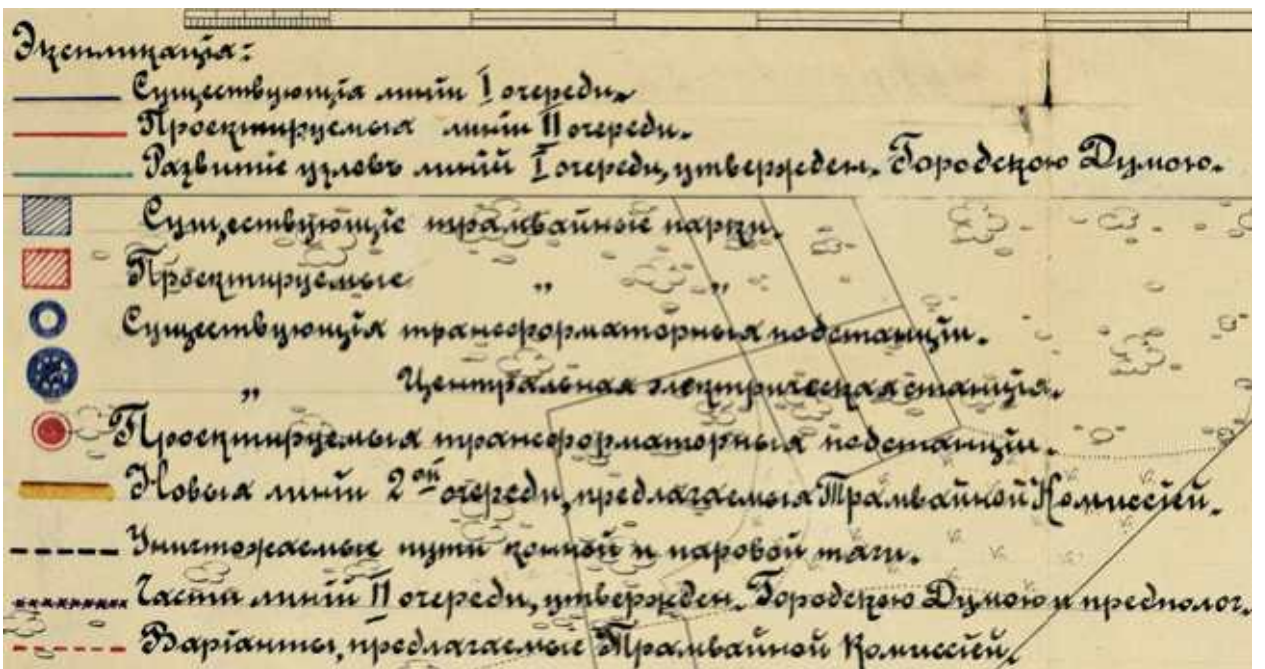 Экспликацiя:
Существующiя линiи I очереди.
Проектируемыя линiи II очереди.
Развитiе узловъ линiй I очереди, утвержден. Городскою Думою.
Существующiе трамвайные парки.
Проектируемые „ „
Существующiя трансформаторныя подстанцiи.
„ Центральная электрическая станцiя.
Проектируемыя трансформаторныя подстанцiи.
Новыя линiи 2ой очереди, предлагаемыя Трамвайной Комиссiей.
Уничтожаемые пути конной и паровой тяги.
Части линiй II очереди, утвержден. Городскою Думою и предполог.
Варiанты, предлагаемые Трамвайной Комиссiей.